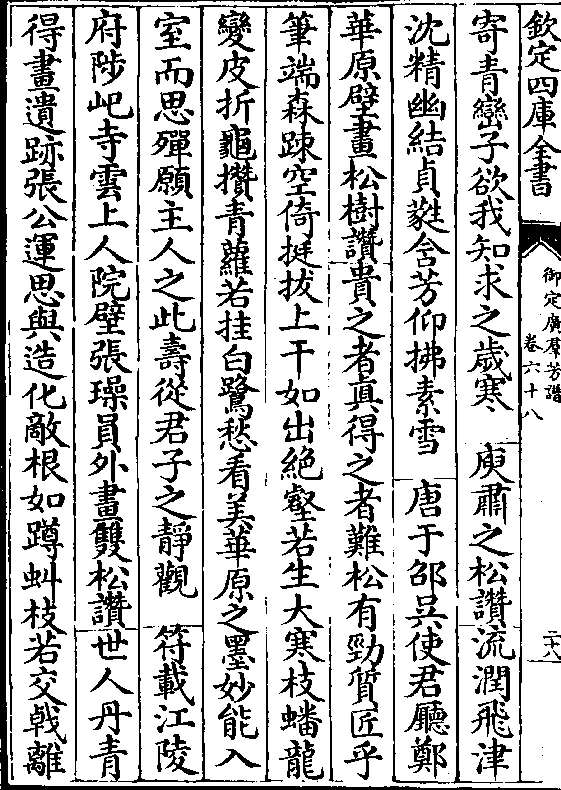 欽定四庫全書
御定廣羣芳譜
卷六十八
二十八
寄青巒子欲我知求之歲寒　庾肅之松讚流潤飛津
沈精幽結貞蕤含芳仰拂素雪　唐于邵吳使君廳鄭
華原壁畫松樹讚貴之者真得之者難松有勁質匠乎
筆端森踈空倚挺拔上干如出絶壑若生大寒枝蟠龍
變皮折龜攢青蘿若挂白鷺愁看美華原之墨妙能入
室而思殫願主人之此壽從君子之靜觀　符載江陵
府陟屺寺雲上人院壁張璪員外畫雙松讚世人丹青
得畫遺跡張公運思與造化敵根如蹲虯枝若交戟離